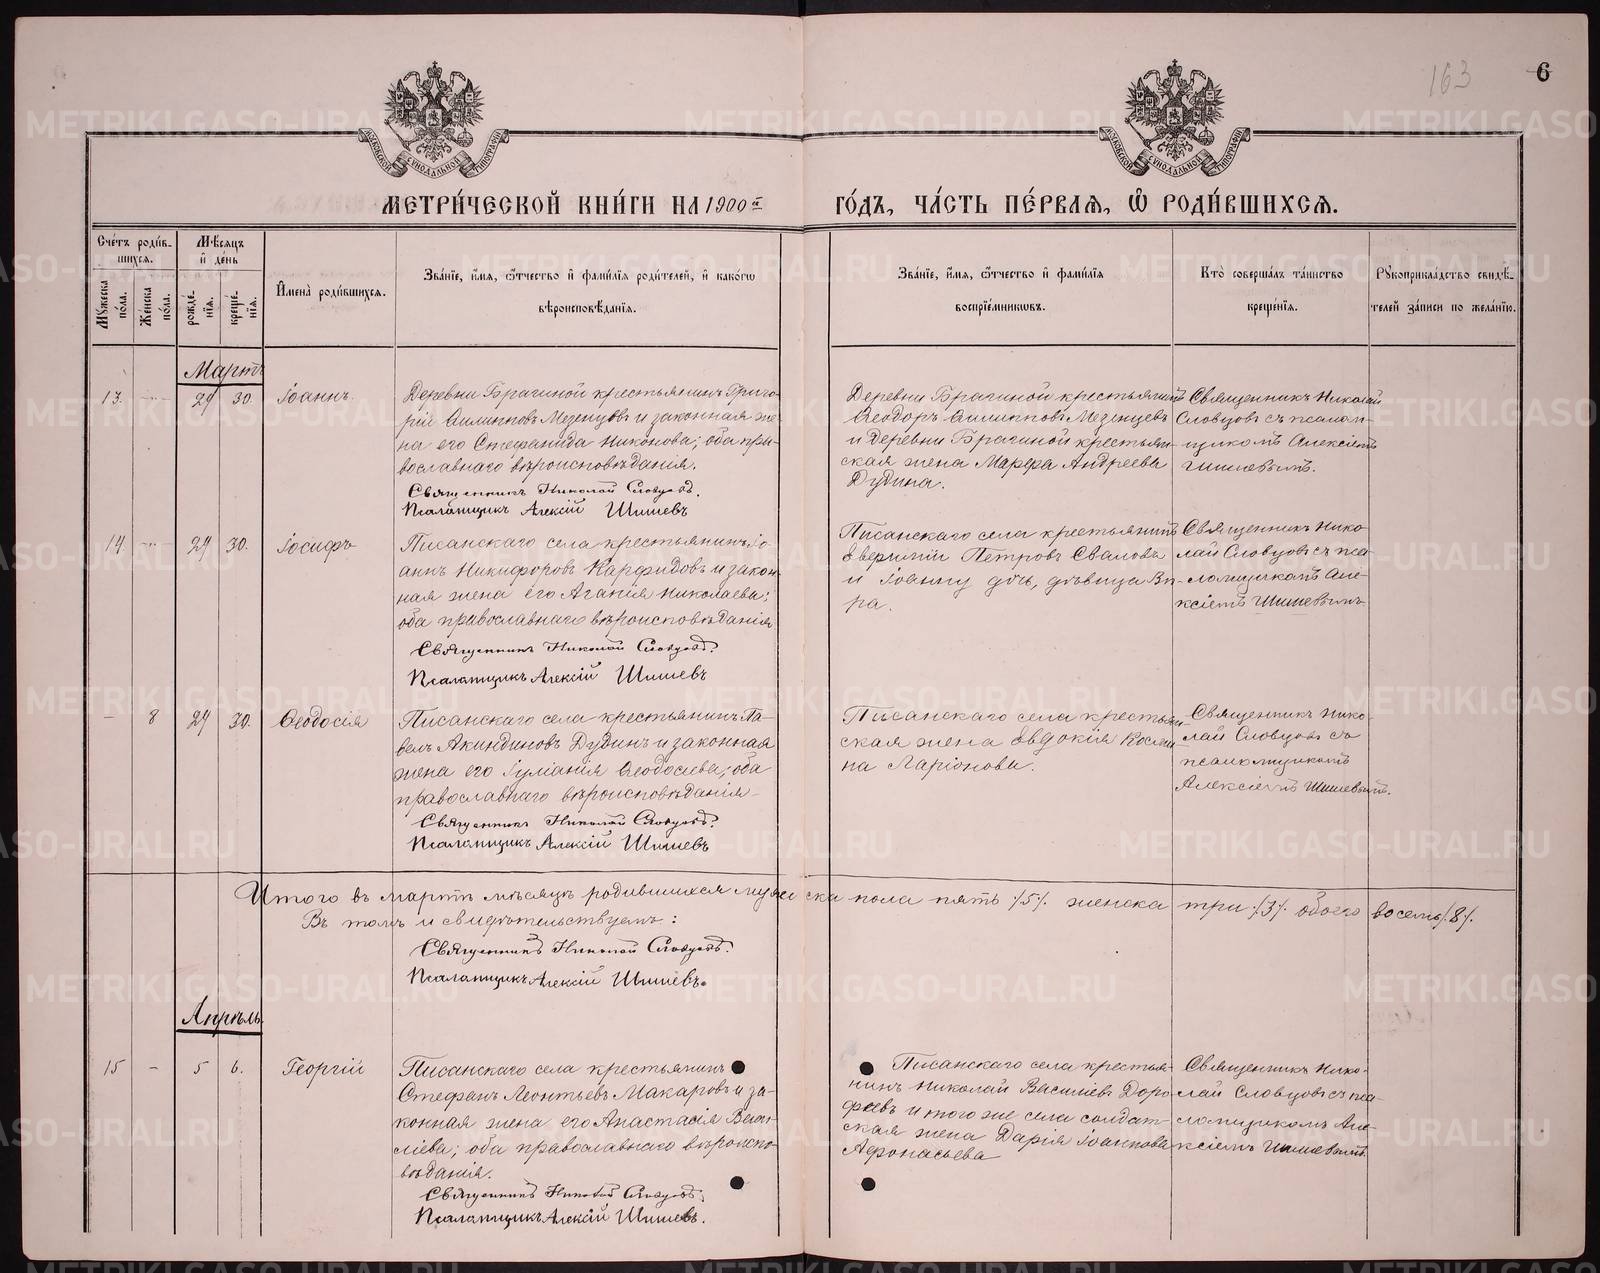 163
6
МОСКОВСКОЙ СИНОДАЛЬНОЙ ТИПОГРАФІИ
МОСКОВСКОЙ СИНОДАЛЬНОЙ ТИПОГРАФІИ
МЕТРИ́ЧЕСКОЙ КНИ́ГИ НА 1900 й ГО́ДЪ, ЧА́СТЬ ПЕ́РВАѦ, Ѽ РОДИ́ВШИХСѦ.
Сче́тъ роди́в-
шихся.
Мꙋ́жеска по́ла.
Же́нска по́ла.
Мѣ́сяцъ и҆ де́нь
рожде́нїя.
креще́нїя.
И҆мена̀ роди́вшихся.
Зва́нїе, и҆́мя, ѻ҆́тчество и҆ фами́лїя роди́телей, и҆ како́гѡ
вѣроисповѣ́данїя.
Зва́нїе, и҆́мя, ѻ҆́тчество и҆ фами́лїя
воспрїе́мниковъ.
Кто̀ соверша́лъ та́инство
креще́нїя.
Рꙋкоприкла́дство свидѣ́-
телей за́писи по жела́нїю.
Мартъ
13. — 29 30. Іоаннъ.
Деревни Брагиной крестьянинъ Григо-
рій Филипповъ Мезенцовъ и законная же-
на его Стефанида Никонова; оба пра-
вославнаго вѣроисповѣданія.
Священникъ Николай Словцовъ.
Псаломщикъ Алексій Шишевъ
Деревни Брагиной крестьянинъ
Ѳеодоръ Филипповъ Мезенцевъ
и Деревни Брагиной крестьян-
ская жена Марѳа Андреева
Дудина.
Священникъ Николай
Словцовъ съ псалом-
щикомъ Алексіемъ
Шишевымъ.
14. — 29 30. Іосифъ
Писанскаго села крестьянинъ Іо-
аннъ Никифоровъ Карфидовъ и закон-
ная жена его Агапія Николаева;
оба православнаго вѣроисповѣданія
Священникъ Николай Словцовъ.
Псаломщикъ Алексій Шишевъ
Писанскаго села крестьянинъ
Петровъ Свалова
и Іоанну дочь, дѣвица Вѣ-
ра.
Священникъ Нико-
лай Словцовъ съ пса-
ломщикомъ Але-
ксіемъ Шишевымъ
— 8 29 30. Ѳеодосія
Писанскаго села крестьянинъ Па-
велъ Акиндиновъ Дудинъ и законная
жена его Іуліанія Ѳеодосіева; оба
православнаго вѣроисповѣданія
Священникъ Николай Словцовъ.
Псаломщикъ Алексій Шишевъ
Писанскаго села крестьян-
ская жена Евдокія Косми-
на Ларіонова.
Священникъ Нико-
лай Словцовъ съ
псаломщикомъ
Алексіемъ Шишевымъ.
Итого въ мартѣ мѣсяцѣ родившихся мужеска пола пять /5/. женска три /3/. обоего восемь /8/.
Въ томъ и свидѣтельствуемъ:
Священникъ Николай Словцовъ.
Псаломщикъ Алексій Шишевъ.
Апрѣль.
15 — 5 6. Георгій
Писанскаго села крестьянинъ
Стефанъ Леонтьевъ Макаровъ и за-
конная жена его Анастасія Васи-
ліева; оба православнаго вѣроиспо-
вѣданія.
Священникъ Николай Словцовъ.
Псаломщикъ Алексій Шишевъ.
Писанскаго села крестья-
нинъ Николай Василіевъ Доро-
феевъ и того же села солдат-
ская жена Дарія Іоаннова
Афонасьева
Священникъ Нико-
лай Словцовъ съ пса-
ломщикомъ Але-
ксіемъ Шишевымъ.